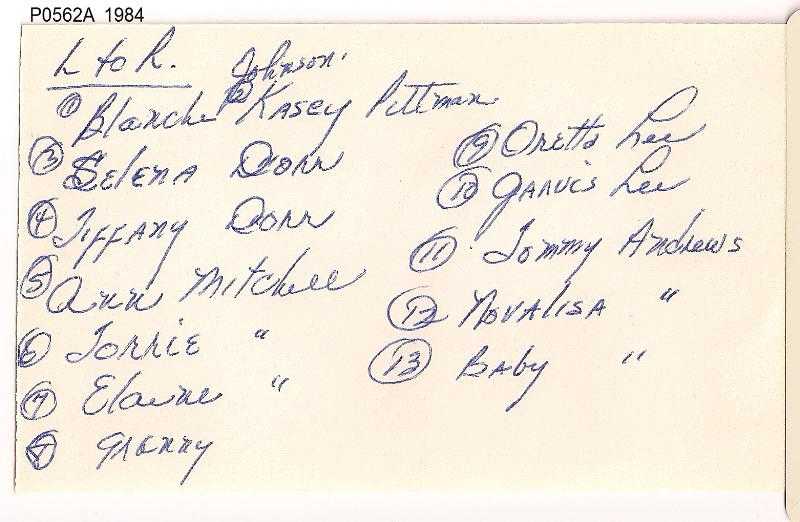 P0562A 1984
L to R. Johnson.
① Blanche ② Kasey Pittman
③ Selena Dorr
④ Tiffany Dorr
⑤ Ann Mitchell
⑥ Torrie "
⑦ Elaine "
⑧ Granny
⑨ Oretta Lee
⑩ Garvis Lee
⑪ Tommy Andrews
⑫ Novalisa "
⑬ Baby "